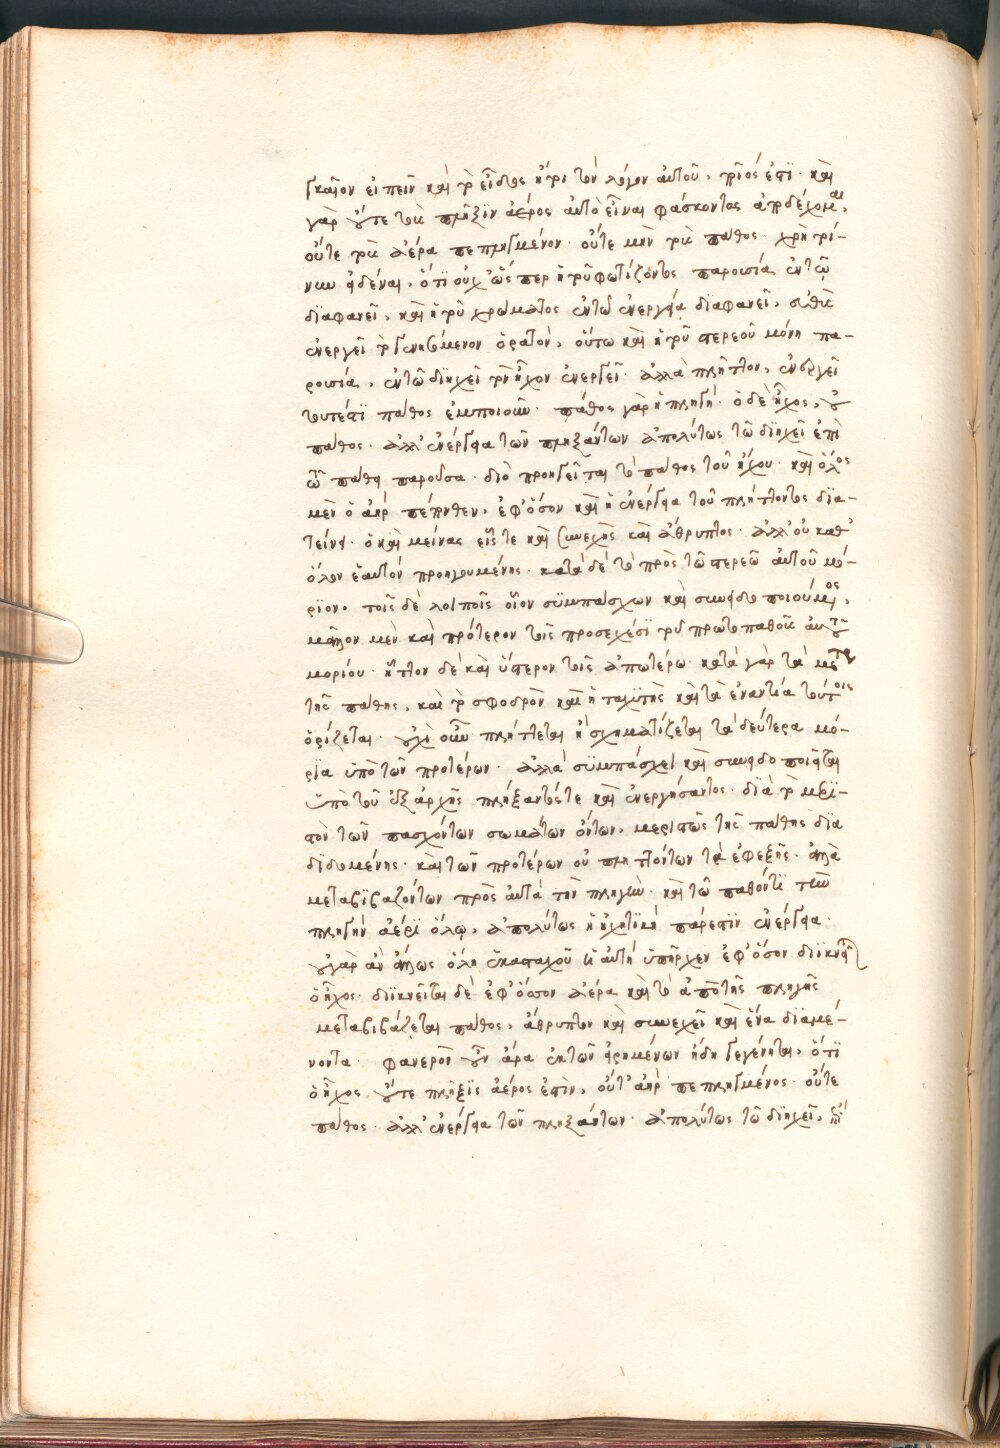 γκαῖον εἰπεῖν καὶ τὸ εἶδος ἤτοι τὸν λόγον αὐτοῦ, τίς ἐστι· καὶ
γὰρ οὔτε τοὺς πλῆξιν ἀέρος αὐτὸ εἶναι φάσκοντας ἀποδέχομαι,
οὔτε τοὺς ἀέρα πεπληγμένον· οὔτε μὴν τοὺς πάθος· χρὴ τοί-
νυν εἰδέναι, ὅτι οὐχ ὥσπερ ἡ τοῦ φωτίζοντος παρουσία ἐν τῷ
διαφανεῖ, καὶ ἡ τοῦ χρώματος ἐν τῷ ἐνεργείᾳ διαφανεῖ, εὐθὺς
ἐνεργεῖ τὸ γινόμενον ὁρατόν, οὕτω καὶ ἡ τοῦ στερεοῦ μόνη πα-
ρουσία, ἐν τῷ διηχεῖ τὸν ἦχον ἐνεργεῖ· ἀλλὰ πλῆττον, ἐνεργεῖ
τουτέστι πάθος ἐμποιοῦν· πάθος γὰρ ἡ πληγή· ὁ δὲ ἦχος, οὐ
πάθος· ἀλλ' ἐνέργεια τῶν πληξάντων ἀπολύτως τῷ διηχεῖ ἐπὶ
τῷ πάθει παροῦσα· διὸ προηγεῖται τὸ πάθος τοῦ ἤχου· καὶ ὅλος
μὲν ὁ ἀὴρ πέπονθεν, ἐφ' ὅσον καὶ ἡ ἐνέργεια τοῦ πλήττοντος δια-
τείνει· ὁ καὶ μείνας εἷς τε καὶ συνεχὴς καὶ ἄθρυπτος· ἀλλ' οὐ καθ'
ὅλον ἑαυτὸν προηγουμένης· κατὰ δὲ τὸ πρὸς τῷ στερεῷ αὐτοῦ μό-
ριον· τοῖς δὲ λοιποῖς οἷον συμπάσχων καὶ συνειδοποιούμενος,
μᾶλλον μὲν καὶ πρότερον τοῖς προσεχέσι τοῦ πρωτοπαθοῦς αὐτοῦ
μορίου· ἧττον δὲ καὶ ὕστερον τοῖς ἀπωτέρω· κατὰ γὰρ τὰ μέτρα
τῆς πάθης, καὶ τὸ σφοδρὸν καὶ ἡ ταχυτὴς καὶ τὰ ἐναντία τούτοις
ὁρίζεται· οὐχὶ οὖν πλήττεται ἢ σχηματίζεται τὰ δεύτερα μό-
ρια ὑπὸ τῶν προτέρων· ἀλλὰ συμπάσχει καὶ συνειδοποιεῖται
ὑπὸ τοῦ ἐξ ἀρχῆς πλήξαντός τε καὶ ἐνεργήσαντος· διὰ τὸ μερι-
στὸν τῶν πασχόντων σωμάτων ὄντων, μεριστῶς τῆς πάθης δια
διδομένης· καὶ τῶν προτέρων οὐ πληττόντων τὰ ἐφεξῆς· ἀλλὰ
μεταβιβαζόντων πρὸς αὐτὰ τὴν πληγήν· καὶ τῷ παθόντι τὴν
πληγὴν ἀέρι ὅλῳ, ἀπολύτως ἡ ἠχητικὴ πάρεστιν ἐνέργεια·
οὐ γὰρ ἂν ἄλλως ὅλη ἑκασταχοῦ ἡ αὐτὴ ὑπῆρχεν ἐφ' ὅσον διικνεῖται
ὁ ἦχος· διικνεῖται δὲ ἐφ' ὅσον ἀέρα καὶ τὸ ἀπὸ τῆς πληγῆς
μεταβιβάζεται πάθος, ἄθρυπτον καὶ συνεχῆ καὶ ἕνα διαμέ-
νοντα· φανερὸν οὖν ἄρα ἐκ τῶν εἰρημένων ἤδη γεγένηται, ὅτι
ὁ ἦχος οὔτε πλῆξις ἀέρος ἐστὶν, οὔτ' ἀὴρ πεπληγμένος· οὔτε
πάθος· ἀλλ' ἐνέργεια τῶν πληξάντων· ἀπολύτως τῷ διηχεῖ, ἐπὶ